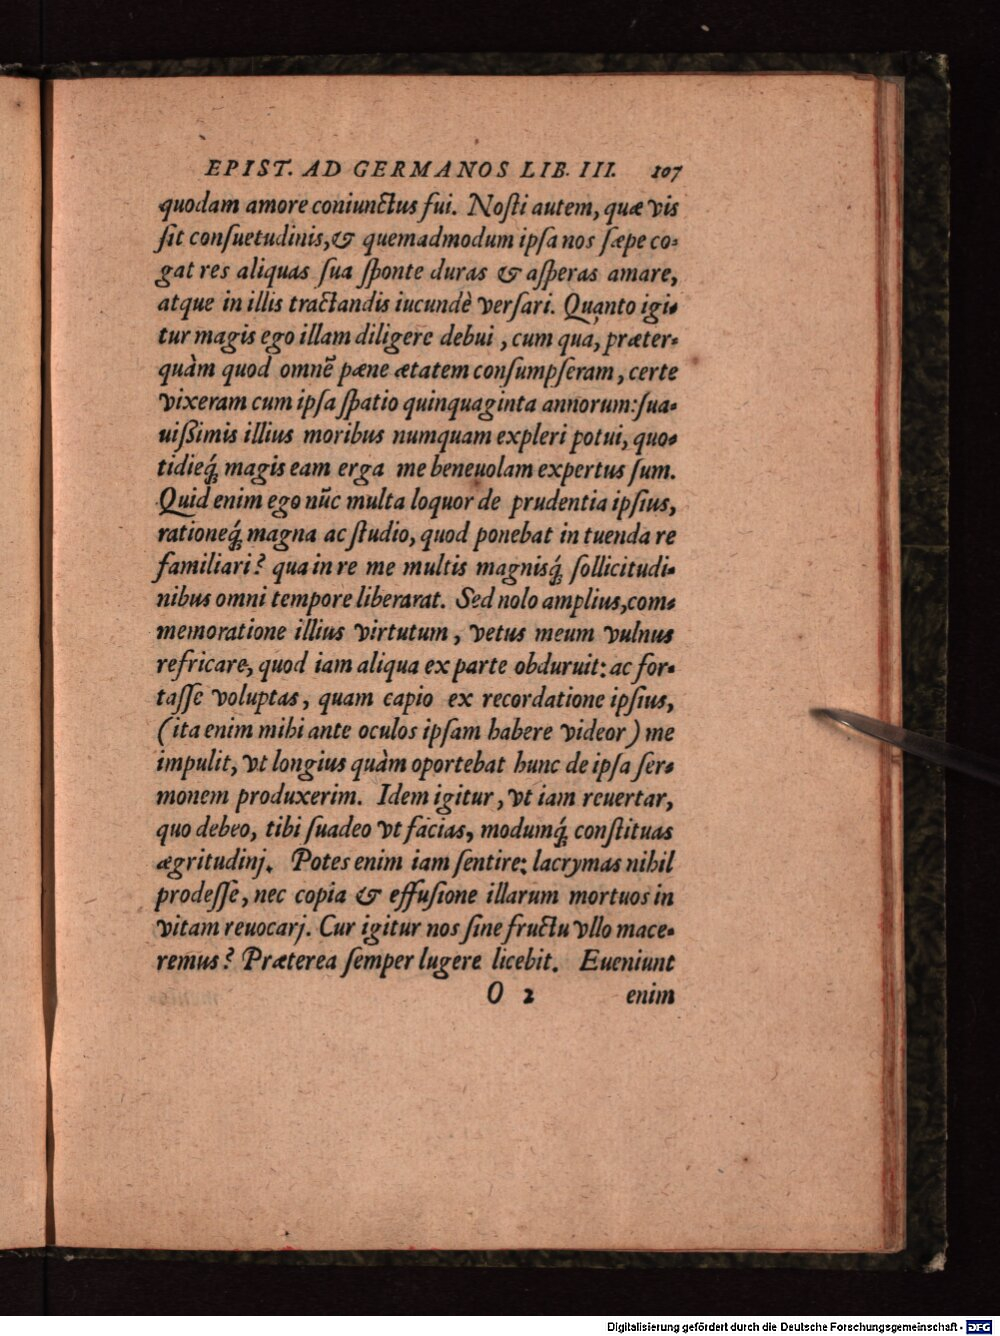 EPIST. AD GERMANOS LIB. III. 107
quodam amore coniunctus fui. Nosti autem, quæ vis
sit consuetudinis, & quemadmodum ipsa nos sæpe co-
gat res aliquas sua sponte duras & asperas amare,
atque in illis tractandis iucundè versari. Quanto igi-
tur magis ego illam diligere debui, cum qua, præter-
quàm quod omnẽ pæne ætatem consumpseram, certe
vixeram cum ipsa spatio quinquaginta annorum: sua-
uißimis illius moribus numquam expleri potui, quo-
tidieq́; magis eam erga me beneuolam expertus sum.
Quid enim ego nũc multa loquor de prudentia ipsius,
rationeq́; magna ac studio, quod ponebat in tuenda re
familiari? qua in re me multis magnisq́; sollicitudi-
nibus omni tempore liberarat. Sed nolo amplius, com-
memoratione illius virtutum, vetus meum vulnus
refricare, quod iam aliqua ex parte obduruit: ac for-
tasse voluptas, quam capio ex recordatione ipsius,
(ita enim mihi ante oculos ipsam habere videor) me
impulit, vt longius quàm oportebat hunc de ipsa ser-
monem produxerim. Idem igitur, vt iam reuertar,
quo debeo, tibi suadeo vt facias, modumq́; constituas
ægritudinj. Potes enim iam sentire: lacrymas nihil
prodesse, nec copia & effusione illarum mortuos in
vitam reuocarj. Cur igitur nos sine fructu vllo mace-
remus? Præterea semper lugere licebit. Eueniunt
O 2 enim
Digitalisierung gefördert durch die Deutsche Forschungsgemeinschaft - DFG